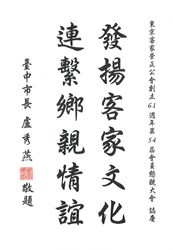 東京客家崇正公會創立61週年第54屆會員懇親大會 誌慶
發揚客家文化
連繫鄉親情誼
臺中市長 盧秀燕 敬題